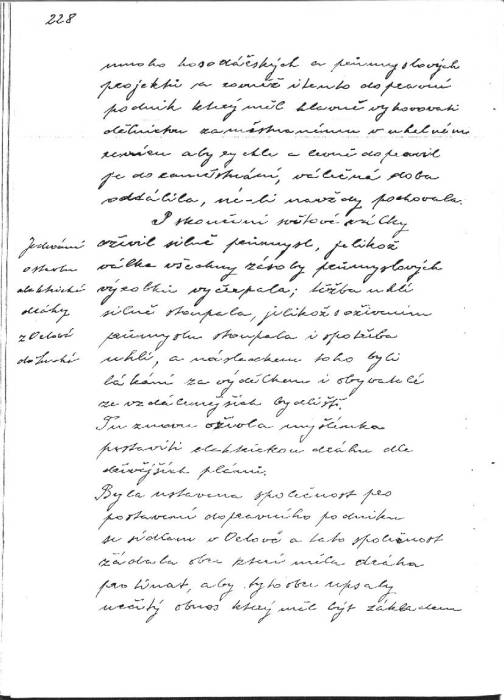 228
mnoho hospodářských a průmyslových
projektů a rovněž i tento dopravní
podnik který měl hlavně vyhovovati
dělnictvu zaměstnanému v uhelném
revíru aby rychle a levně dopravil
je do zaměstnání, válečná doba
oddálila, ne-li navždy pochovala.
Jednání
o stavbu
elektrické
dráhy
z Orlové
do Suché
S skončení světové války
oživil silně průmysl, jelikož
válka všechny zásoby průmyslových
výrobků vyčerpala; těžba uhlí
silně stoupala, jelikož s oživením
průmyslu stoupala i spotřeba
uhlí, a následkem toho byli
lákáni za výdělkem i obyvatelé
ze vzdálenějších bydlišť.
Tu znovu ožívla myšlenka
postaviti elektrickou dráhu dle
dřívějších plánů.
Byla ustavena společnost pro
postavení dopravního podniku
se sídlem v Orlové a tato společnost
žádala obce které měla dráha
protínat, aby tyto obce upsaly
určitý obnos který měl být základem